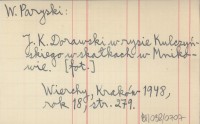 W. Paryski:
J. K. Dorawski w rysie Kulczyń-
skiego w skałkach w Mniko-
wie." [fot.]
Wierchy, Kraków - 1948,
rok 18, str. 279.